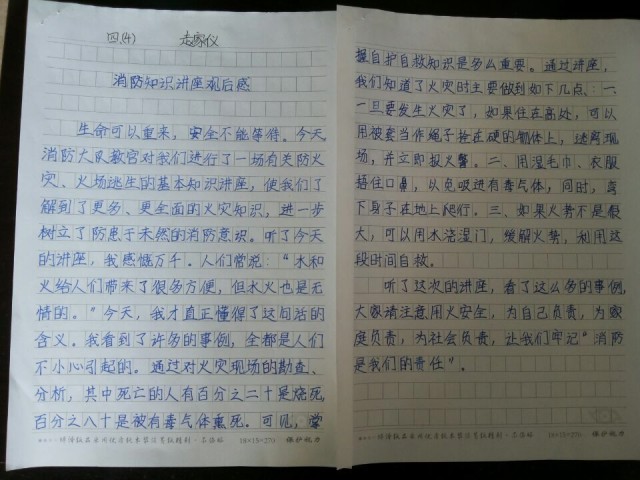 四.(4) 赵家仪
消防知识讲座观后感
生命可以重来，安全不能等待。今天，
消防大队教官对我们进行了一场有关防火
灾、火场逃生的基本知识讲座，使我们了
解到了更多、更全面的火灾知识，进一步
树立了防患于未然的消防意识。听了今天
的讲座，我感慨万千。人们常说："水和
火给人们带来了很多方便，但水火也是无
情的。"今天，我才真正懂得了这句话的
含义。我看到了许多的事例，全都是人们
不小心引起的。通过对火灾现场的勘查、
分析，其中死亡的人有百分之二十是烧死，
百分之八十是被有毒气体熏死。可见，掌
16×15=270 保护视力
握自护自救知识是多么重要。通过讲座，
我们知道了火灾时主要做到如下几点：一.
一旦要发生火灾了，如果住在高处，可以
用被套当作绳子拴在硬的物体上，逃离现
场，并立即报火警。二、用湿毛巾、衣服
捂住口鼻，以免吸进有毒气体，同时，弯
下身子在地上爬行。三、如果火势不是很
大，可以用水浇湿门，缓解火势，利用这
段时间自救。
听了这次的讲座，看了这么多的事例，
大家请注意用火安全，为自己负责，为家
庭负责，为社会负责，让我们牢记"消防
是我们的责任"。
16×15=270 保护视力